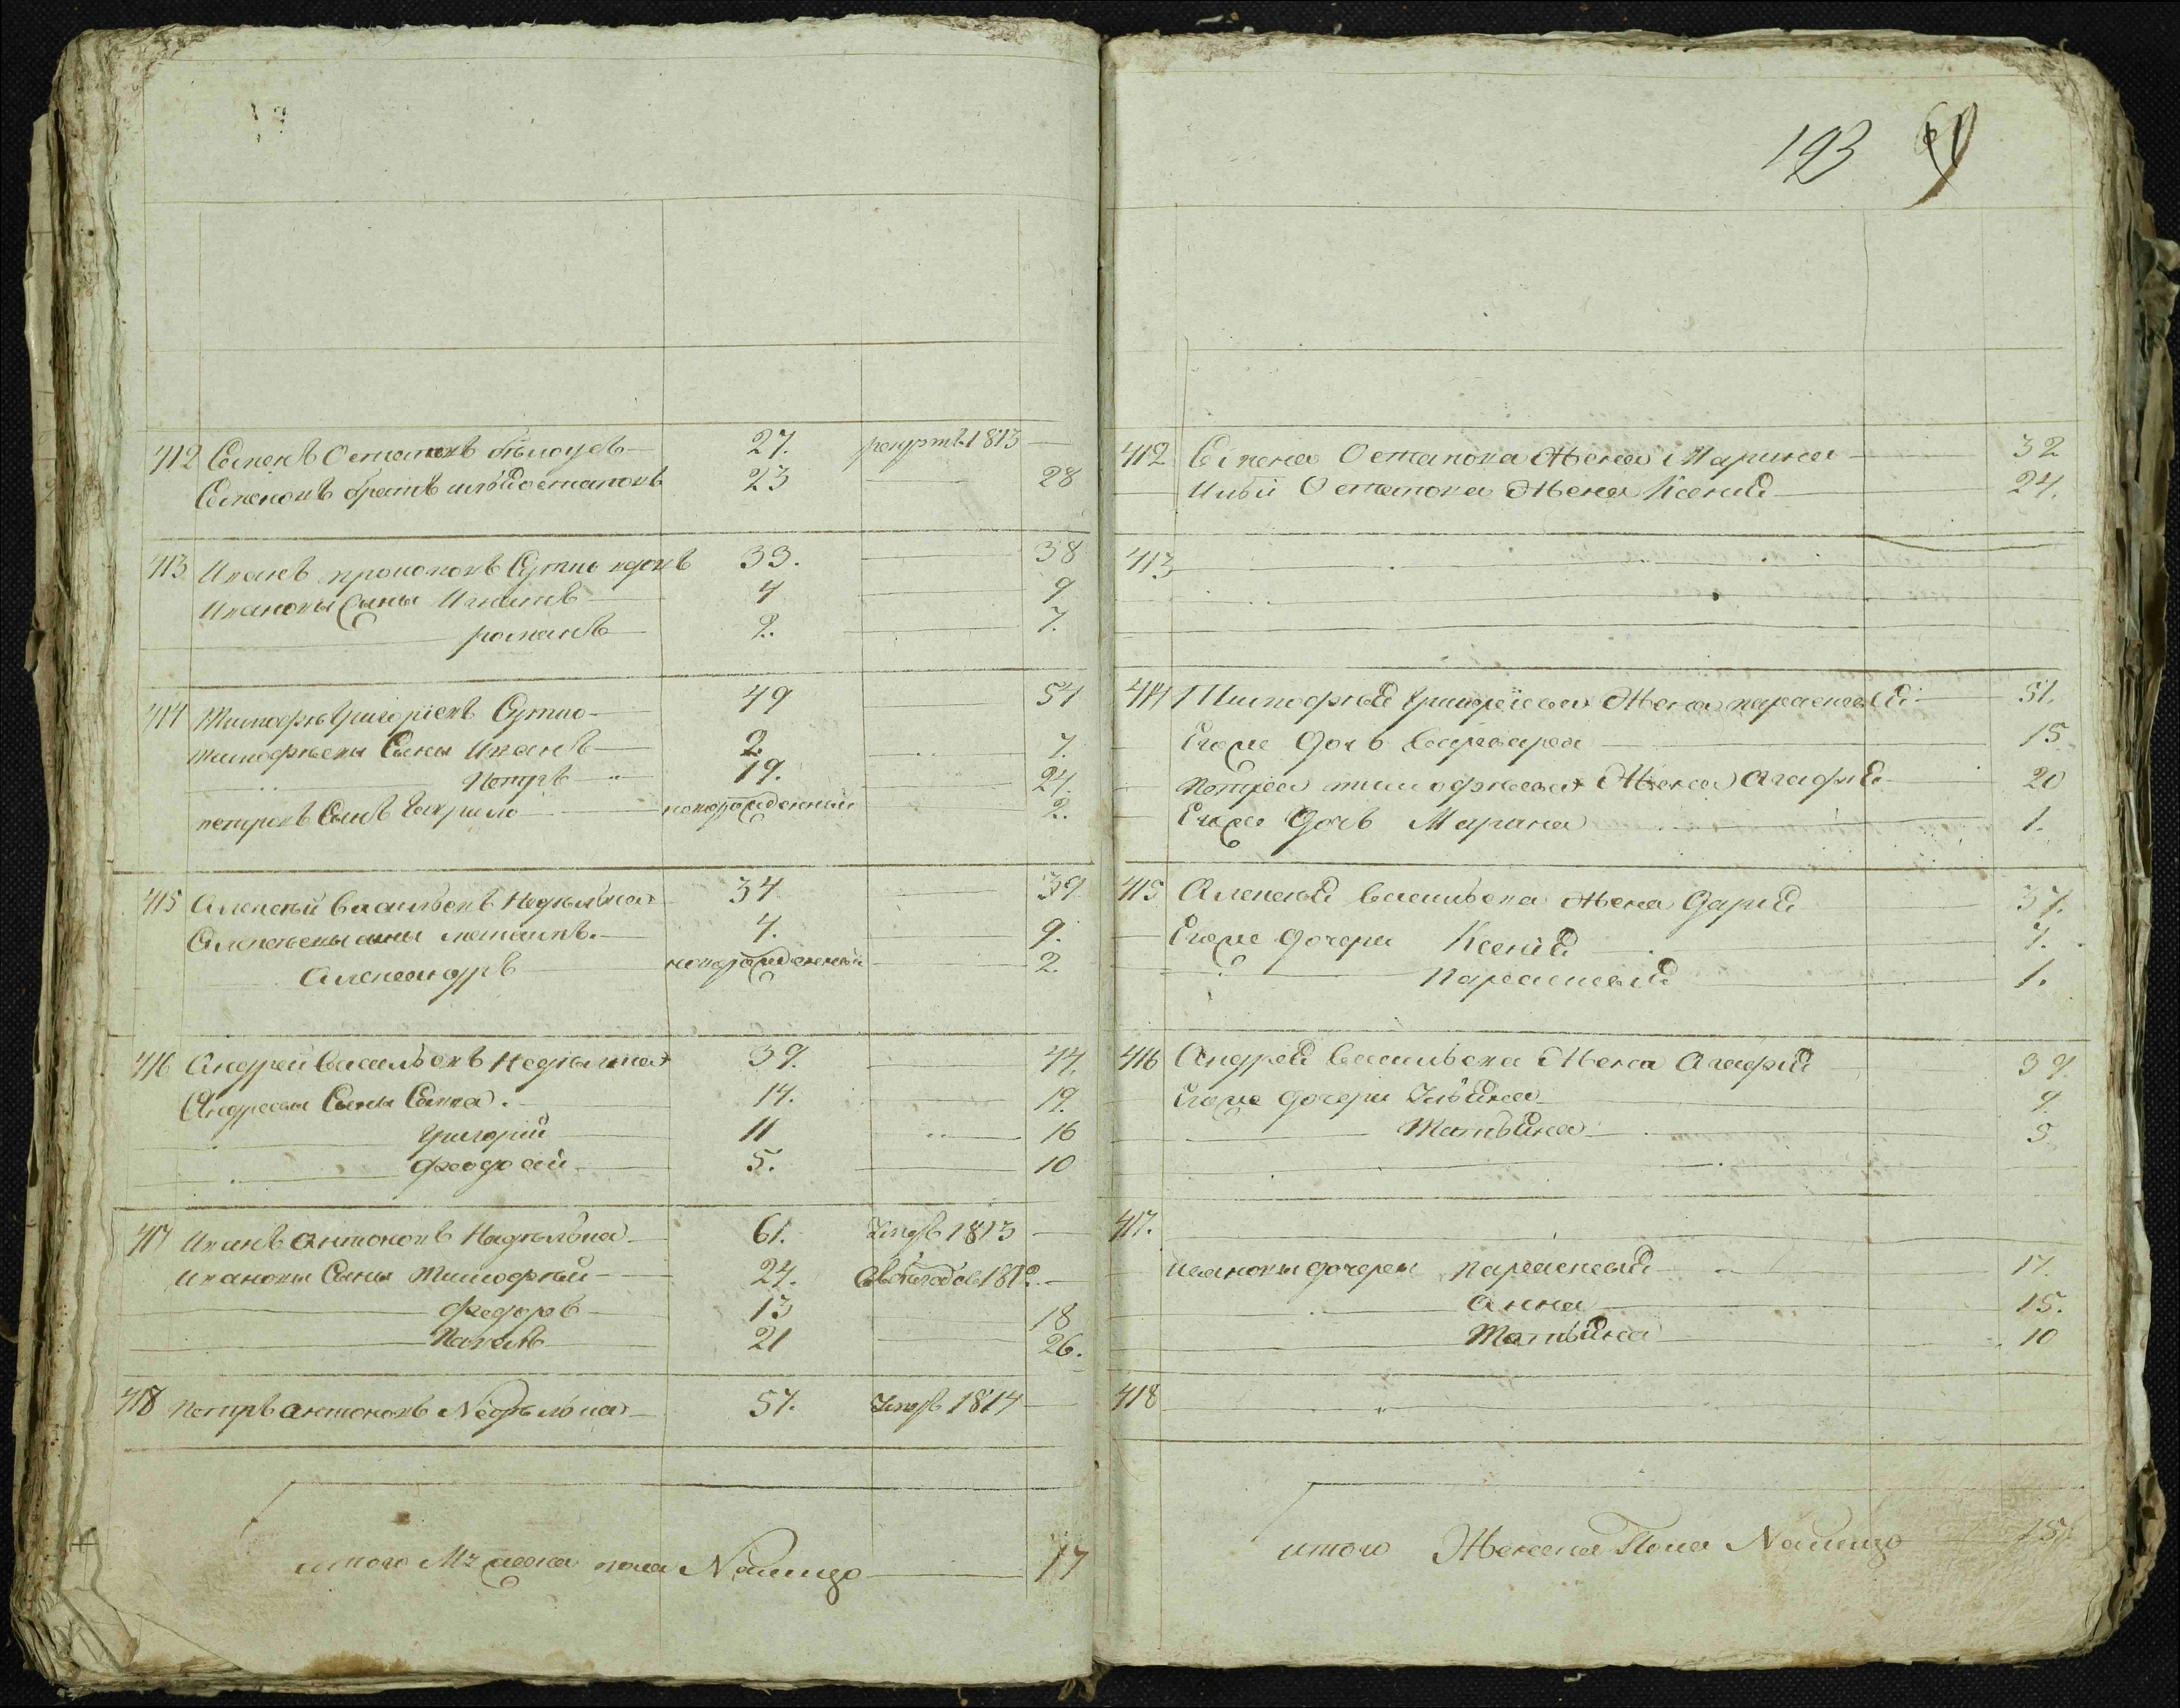 412 Семенъ Остаповъ Бѣлоусъ 27. рекрутъ 1813
Семеновъ братъ Илья Остаповъ 23 28
413 Иванъ Прокоповъ Сутно вдовъ 33. 38
Ивановы Сыны Игнатъ 4 9
романъ 2. 7.
414 Тимофей Григоріевъ Сутно 49 54
Тимофеевы Сыны Иванъ 2. 7.
Петръ 19. 24.
петровъ Сынъ Гаврило новорожденный 2.
415 Алексей Васильевъ Недѣлька 34 39
Алексеевы сыны 4. 9.
Александръ новорожденный 2.
416 Андрей Васильевъ Недѣлька 39. 44.
Андреевы Сыны Савка. 14. 19.
Григорій 11 16
Феодосий 5. 10
417 Иванъ Антоновъ Недѣлька 61. Умеръ 1813
Ивановы Сыны Тимофей 24. 1812.
Федоръ 13 18
Павелъ 21 26.
418 Петръ Антоновъ Недѣлька 57. Умеръ 1814
итого Мужеска пола Налицо 17
193
412 Семена Остапова Жена Марина 32
Ильи Остапова Жена Ксенія 24.
413
414 Тимофея Григорієва Жена параскевія 51.
Егоже Дочь Варвара 15
Петра тимофеева Жена Агафія 20
Егоже Дочь Марина 1.
415 Алексея Васильева Жена Дарія 37.
Егоже дочери Ксенія 7.
Параскевія 1.
416 Андрея Васильева Жена Агафія 39
Егоже дочери Ульяна 9.
Татьяна 5
417.
Ивановы дочери Параскевія 17.
Анна 15.
Татьяна 10
418
итого Женска Пола Налицо 15.